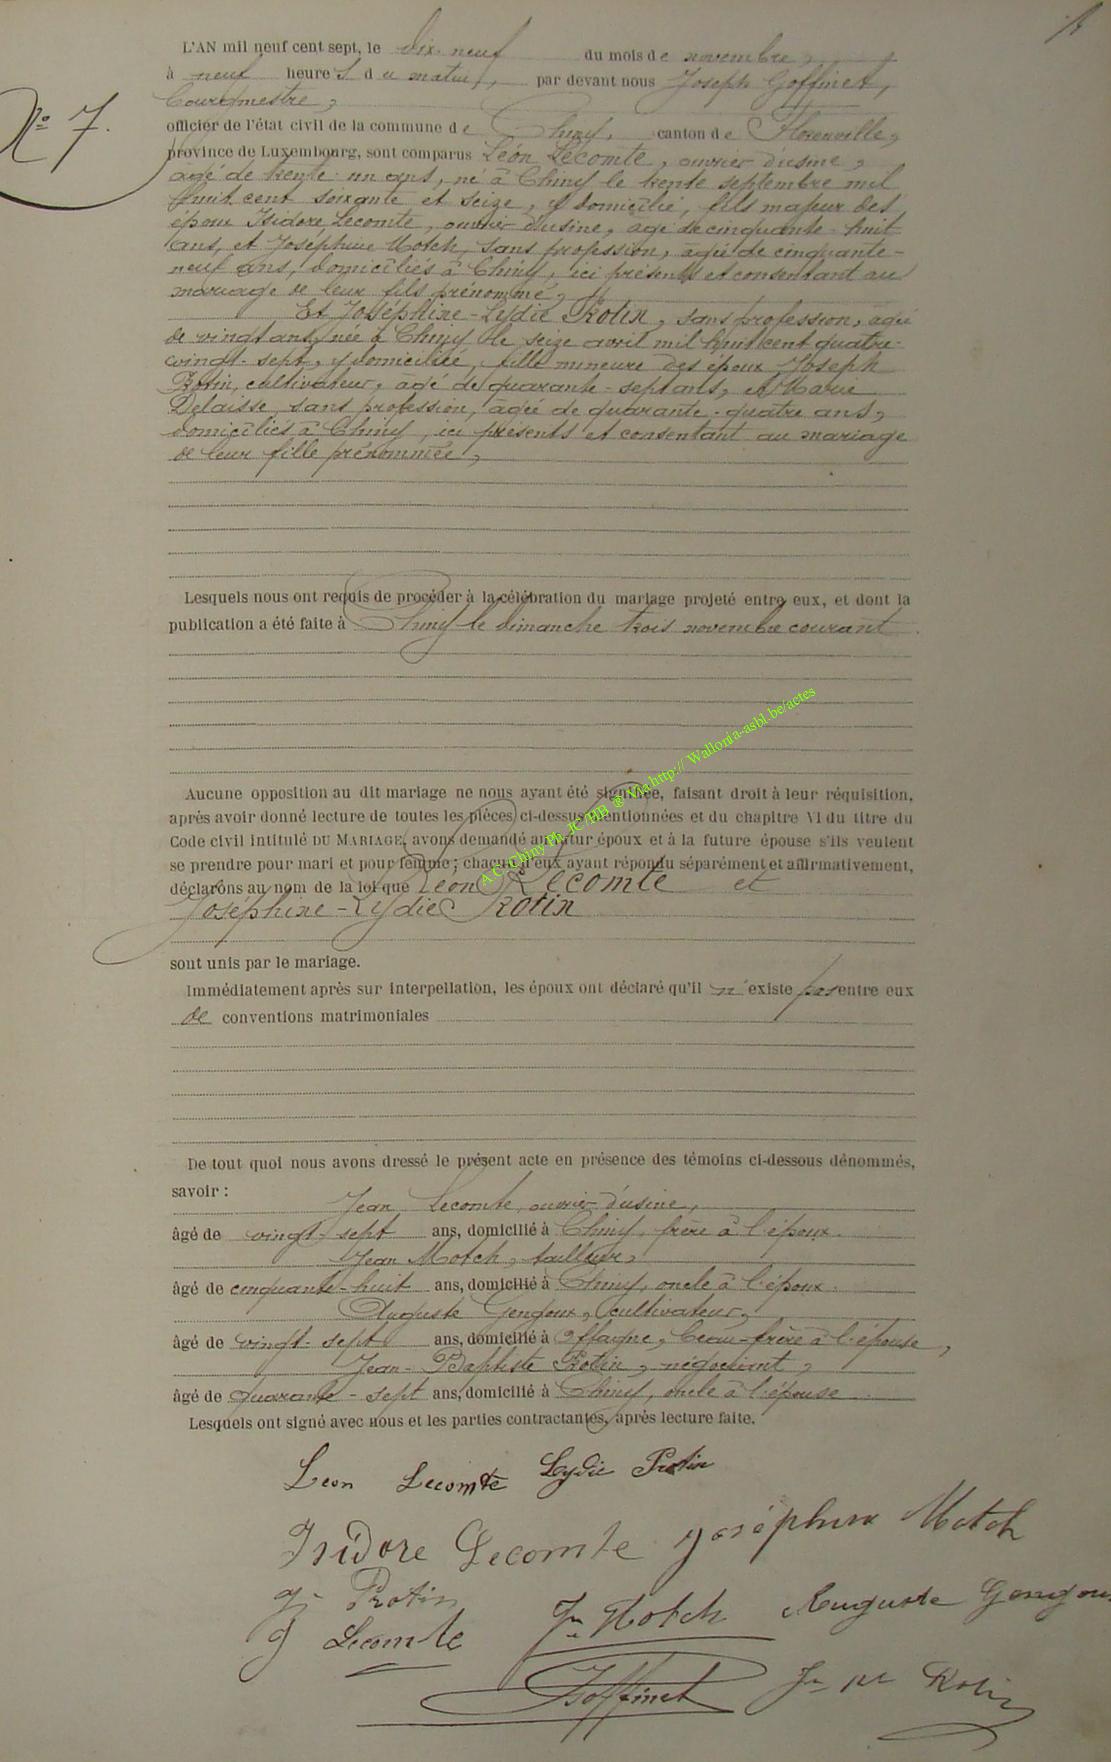 L'AN mil neuf cent sept, le dix-neuf du mois de novembre,
à neuf heures du matin, par devant nous Joseph Goffinet,
bourgmestre,
N° 7.
officier de l'état civil de la commune de Chiny, canton de Florenville,
province de Luxembourg, sont comparus Léon Lecomte, ouvrier d'usine,
âgé de trente-un ans, né à Chiny le trente septembre mil
huit cent soixante et seize, y domicilié, fils majeur des
époux Isidore Lecomte, ouvrier d'usine, âgé de cinquante-huit
ans, et Joséphine Motch, sans profession, âgée de cinquante-
neuf ans, domiciliés à Chiny, ici présents et consentant au
mariage de leur fils prénommé,
Et Joséphine-Lydie Rotin, sans profession, âgée
de vingt ans, née à Chiny le seize avril mil huit cent quatre-
vingt-sept, y domiciliée, fille mineure des époux Joseph
Rotin, cultivateur, âgé de quarante-sept ans, et Marie
Delaisse, sans profession, âgée de quarante-quatre ans,
domiciliés à Chiny, ici présents et consentant au mariage
de leur fille prénommée,
Lesquels nous ont requis de procéder à la célébration du mariage projeté entre eux, et dont la
publication a été faite à Chiny le dimanche trois novembre courant
Aucune opposition au dit mariage ne nous ayant été signifiée, faisant droit à leur réquisition,
après avoir donné lecture de toutes les pièces ci-dessus mentionnées et du chapitre VI du titre du
Code civil intitulé DU MARIAGE, avons demandé au futur époux et à la future épouse s'ils veulent
se prendre pour mari et pour femme ; chacun d'eux ayant répondu séparément et affirmativement,
déclarons au nom de la loi que Léon Lecomte et
Joséphine-Lydie Rotin
sont unis par le mariage.
Immédiatement après sur interpellation, les époux ont déclaré qu'il n'existe pas entre eux
de conventions matrimoniales
De tout quoi nous avons dressé le présent acte en présence des témoins ci-dessous dénommés,
savoir :
Jean Lecomte, ouvrier d'usine,
âgé de vingt-sept ans, domicilié à Chiny, frère à l'époux.
Jean Motch, tailleur,
âgé de cinquante-huit ans, domicilié à Chiny, oncle à l'époux.
Auguste Gengoux, cultivateur,
âgé de vingt-sept ans, domicilié à Offagne, beau-frère à l'épouse,
Jean-Baptiste Rotin, négociant,
âgé de quarante-sept ans, domicilié à Chiny, oncle à l'épouse
Lesquels ont signé avec nous et les parties contractantes, après lecture faite.
Léon Lecomte Lydie Rotin
Isidore Lecomte Joséphine Motch
J. Rotin
J Lecomte Jn Motch Auguste Gengoux
Goffinet Jn Bte Rotin
A C Chiny Ph. JC/HB ® Via http:// Wallonia-asbl.be/actes